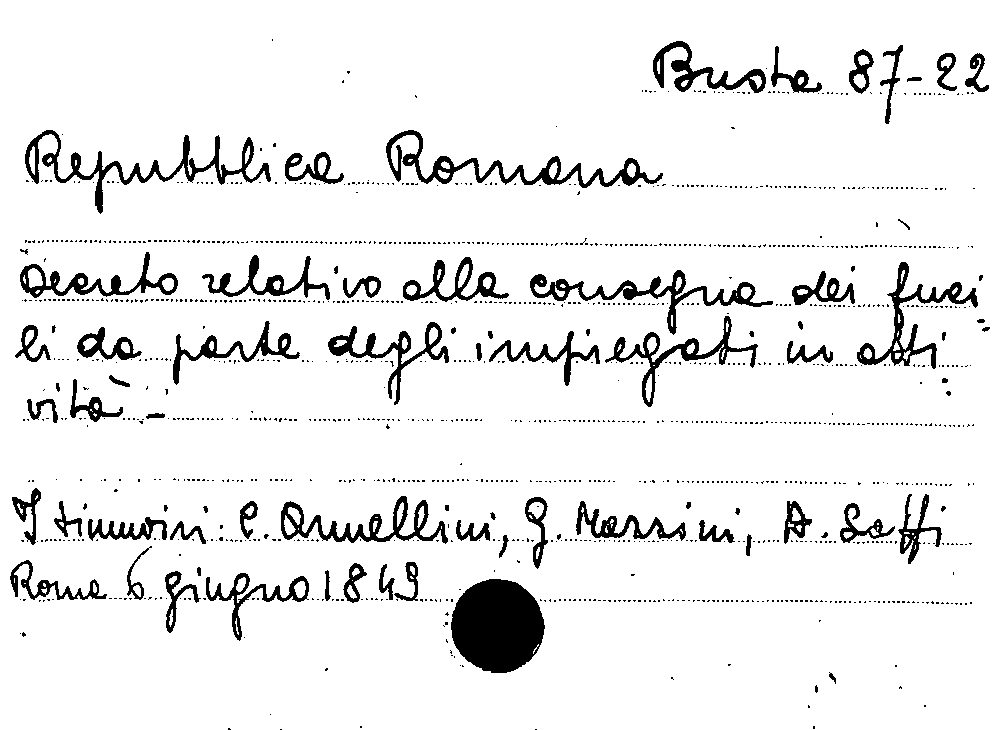 Busta 87-22
Repubblica Romana
Decreto relativo alla consegna dei fuci=
li da parte degli impiegati in atti=
vità -
I triumviri: C. Armellini, G. Mazzini, A. Saffi
Roma 6 giugno 1849